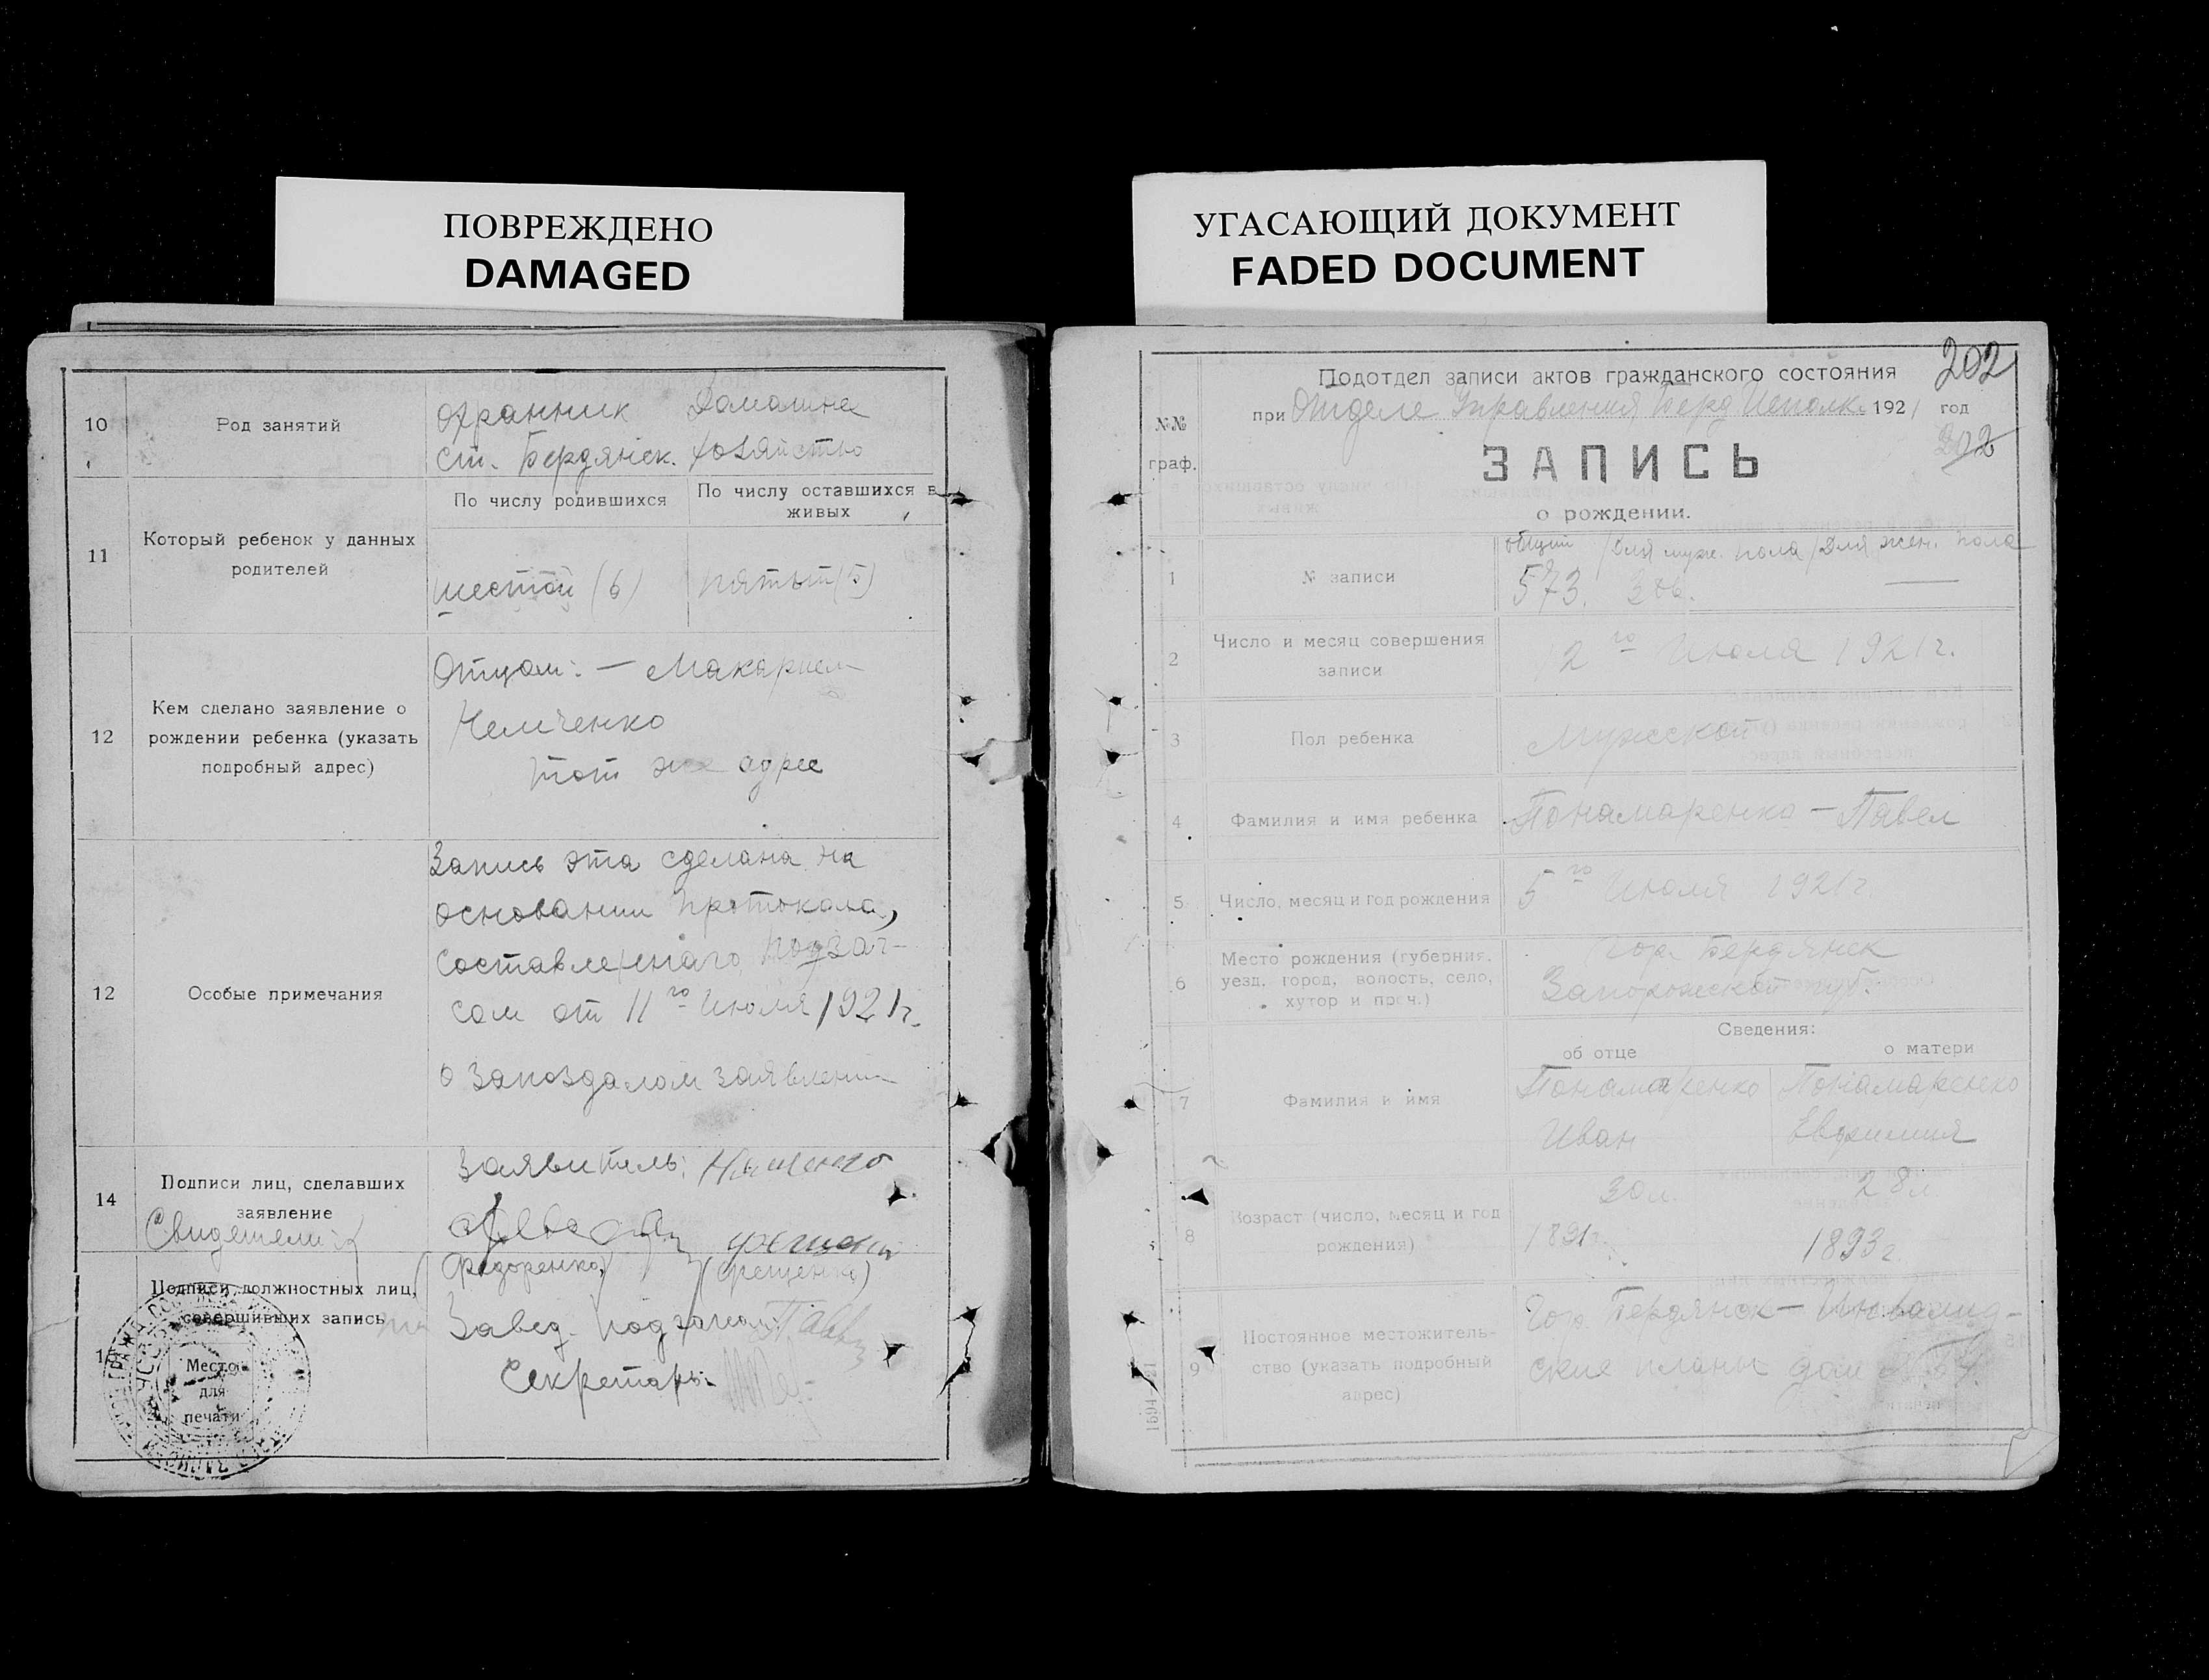 ПОВРЕЖДЕНО
DAMAGED
10
Род занятий
охранник
ст. Бердянск.
Домашнее
хозяйство
11
Который ребенок у данных
родителей
По числу родившихся
По числу оставшихся в
живых
шестой (6)
пятый (5)
12
Кем сделано заявление о
рождении ребенка (указать
подробный адрес)
Отцом: — Макарием
Немченко
тот же адрес
12
Особые примечания
Запись эта сделана на
основании протокола,
составленнаго подзаг-
сом от 11го Июля 1921г.
о запоздалом заявлении
14
Подписи лиц, сделавших
заявление
Свидетели:
Заявитель:
(Федоренко)
(Грещенко)
Подписи должностных лиц,
совершивших запись
Место
для
печати
Завед. подзагсом
Секретарь
УГАСАЮЩИЙ ДОКУМЕНТ
FADED DOCUMENT
202
Подотдел записи актов гражданского состояния
при Отделе Управления Берд Исполк. 1921 год
202
№№
граф.
ЗАПИСЬ
о рождении.
1
№ записи
общий / для муж. пола / для жен. пола
573. 306. —
2
Число и месяц совершения
записи
12го Июля 1921г.
3
Пол ребенка
Мужской
4
Фамилия и имя ребенка
Понамаренко — Павел
5
Число, месяц и год рождения
5го Июля 1921г.
6
Место рождения (губерния,
уезд, город, волость, село,
хутор и проч.)
Гор. Бердянск
Запорожской губ.
Сведения:
об отце
о матери
7
Фамилия и имя
Понамаренко
Иван
Понамаренко
Евфимия
8
Возраст (число, месяц и год
рождения)
30л.
1891г.
28л.
1893г.
9
Постоянное местожитель-
ство (указать подробный
адрес)
Гор. Бердянск — Инвалид-
ские планы дом